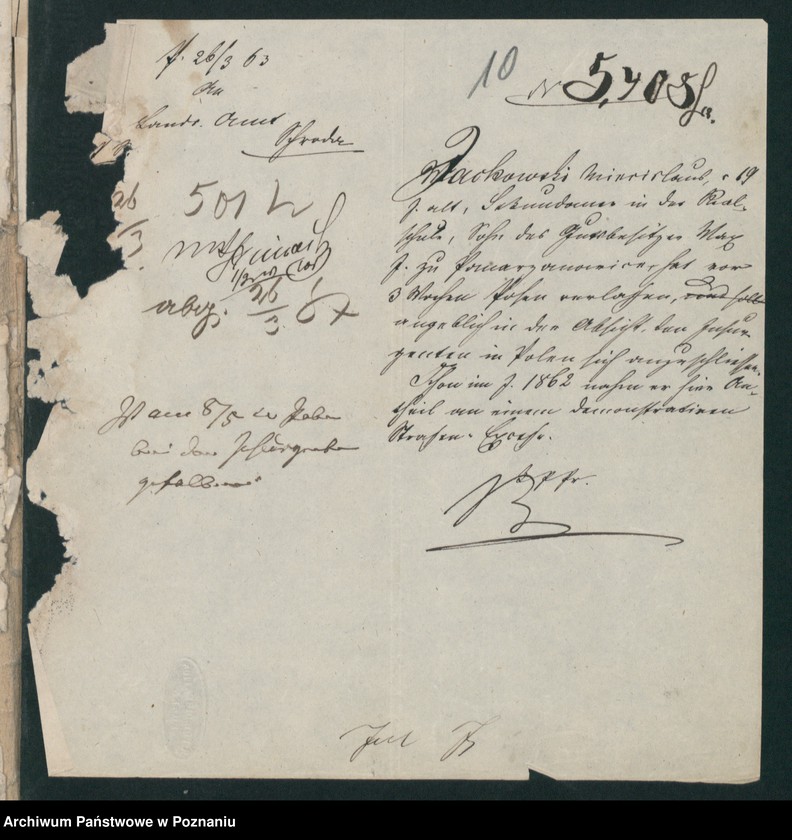 P. 26/3 63
An
Landr. Amt
Schroda
26/3
501
abg. 26/3 67
Ist am 8/5 in Polen
bei den Insurgenten
gefallen
10
№ 5,408
Jackowski Miecislaus, 19
J. alt, Sekundaner in der Real-
schule, Sohn des Gutsbesitzer Max
J. zu Pomarzanowice, hat vor
3 Wochen Posen verlassen, und soll
angeblich in der Absicht, den Insur-
genten in Polen sich anzuschließen.
Schon im J. 1862 nahm er hier An-
theil an einem demonstrativen
Straßen-Exceß.
Archiwum Państwowe w Poznaniu